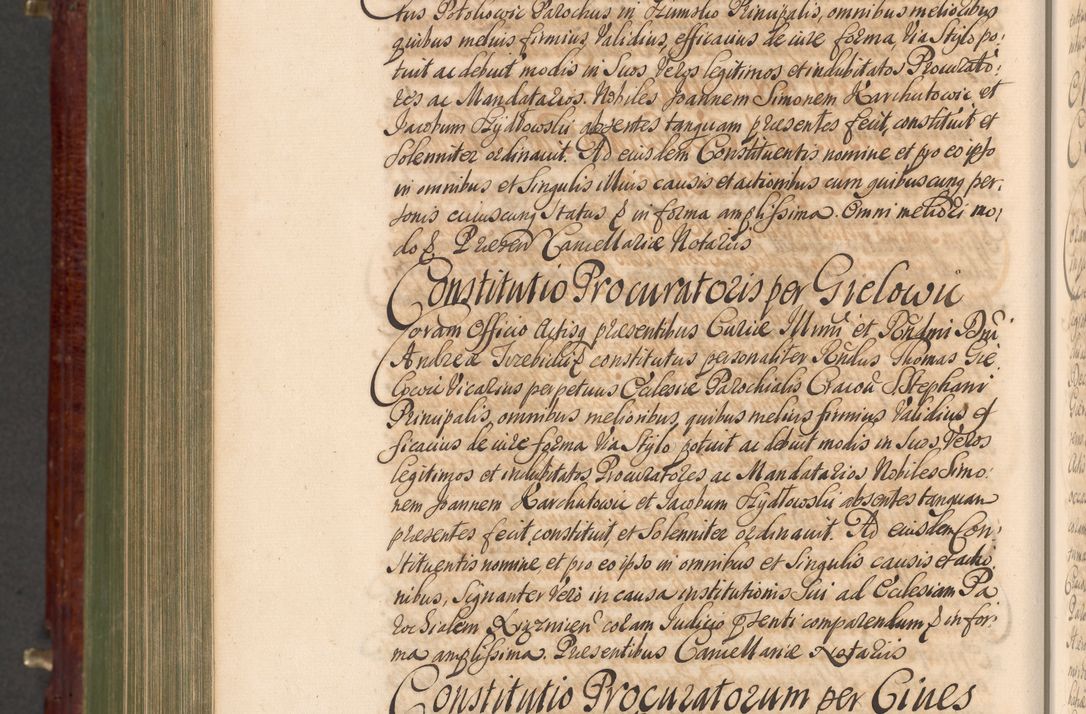 tus Potokowic Parochus in Zumsko Principalis, omnibus melioribus
quibus melius firmius, validius, efficacius de iure forma, via stylo po
tuit ac debuit modis in Suos Veros legitimos et indubitatos Procurato:
res ac Mandatarios. Nobiles Joannem Simonem Karchutowic et
Jacobum Hydtowski absentes tanquam praesentes fecit, constituit et
Solenniter ordinauit. Ad eiusdem Constituentis nomine et pro eo ipso
in omnibus et Singulis illius causis et actionibus cum quibuscunq per:
sonis cuiuscunq Status & in forma amplissima. Omni meliori mo:
do & Praesen Cancellariae Notariis
Constitutio Procuratoris per Gielowic
Coram Officio Actisq praesentibus Curiae Illmi et Rndmi Dni
Andreae Trzebicki & constitutus personaliter Rndus Thomas Gie
lowic Vicarius perpetuus Ecclesiae Parochialis Cracou S. Stephani
Principalis, omnibus melioribus, quibus melius firmius validius ef
ficacius de iure forma via Stylo potuit ac debuit modis in Suos, Veros
legitimos et indubitatos Procuratores ac Mandatarios Nobiles Simo:
nem Joannem Karchutowic et Jacobum Hydtowski absentes tanquam
praesentes fecit, constituit et Solenniter ordinauit. Ad eiusdem Con
stituentis nomine, et pro eo ipso in omnibus et Singulis causis et actio
nibus, Signanter vero in causa institutionis Sui ad Ecclesiam Pa
rochialem coram Iudicio psenti comparendum & in for:
ma amplissima. Praesentibus Cancellariae Notariis
Constitutio Procuratorum per Ciues